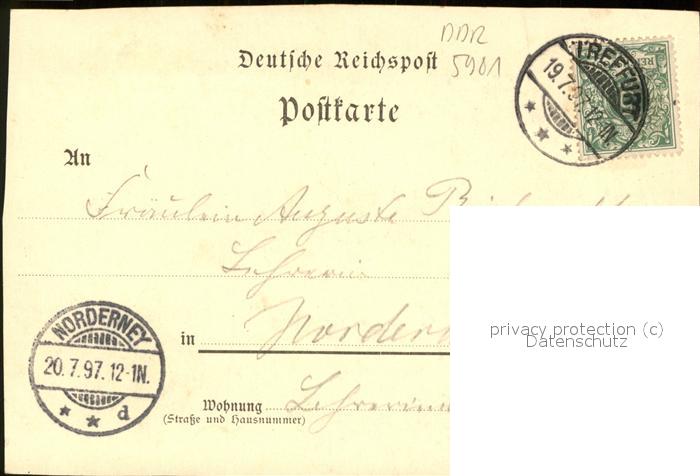 DDR
5901
Deutsche Reichspost
Postkarte
TREFFURT
19.7.97.12-1N.
An
Fräulein Auguste
Lehrerin
NORDERNEY
20.7.97.12-1N.
d
in
Wohnung
(Straße und Hausnummer)
privacy protection (c)
Datenschutz